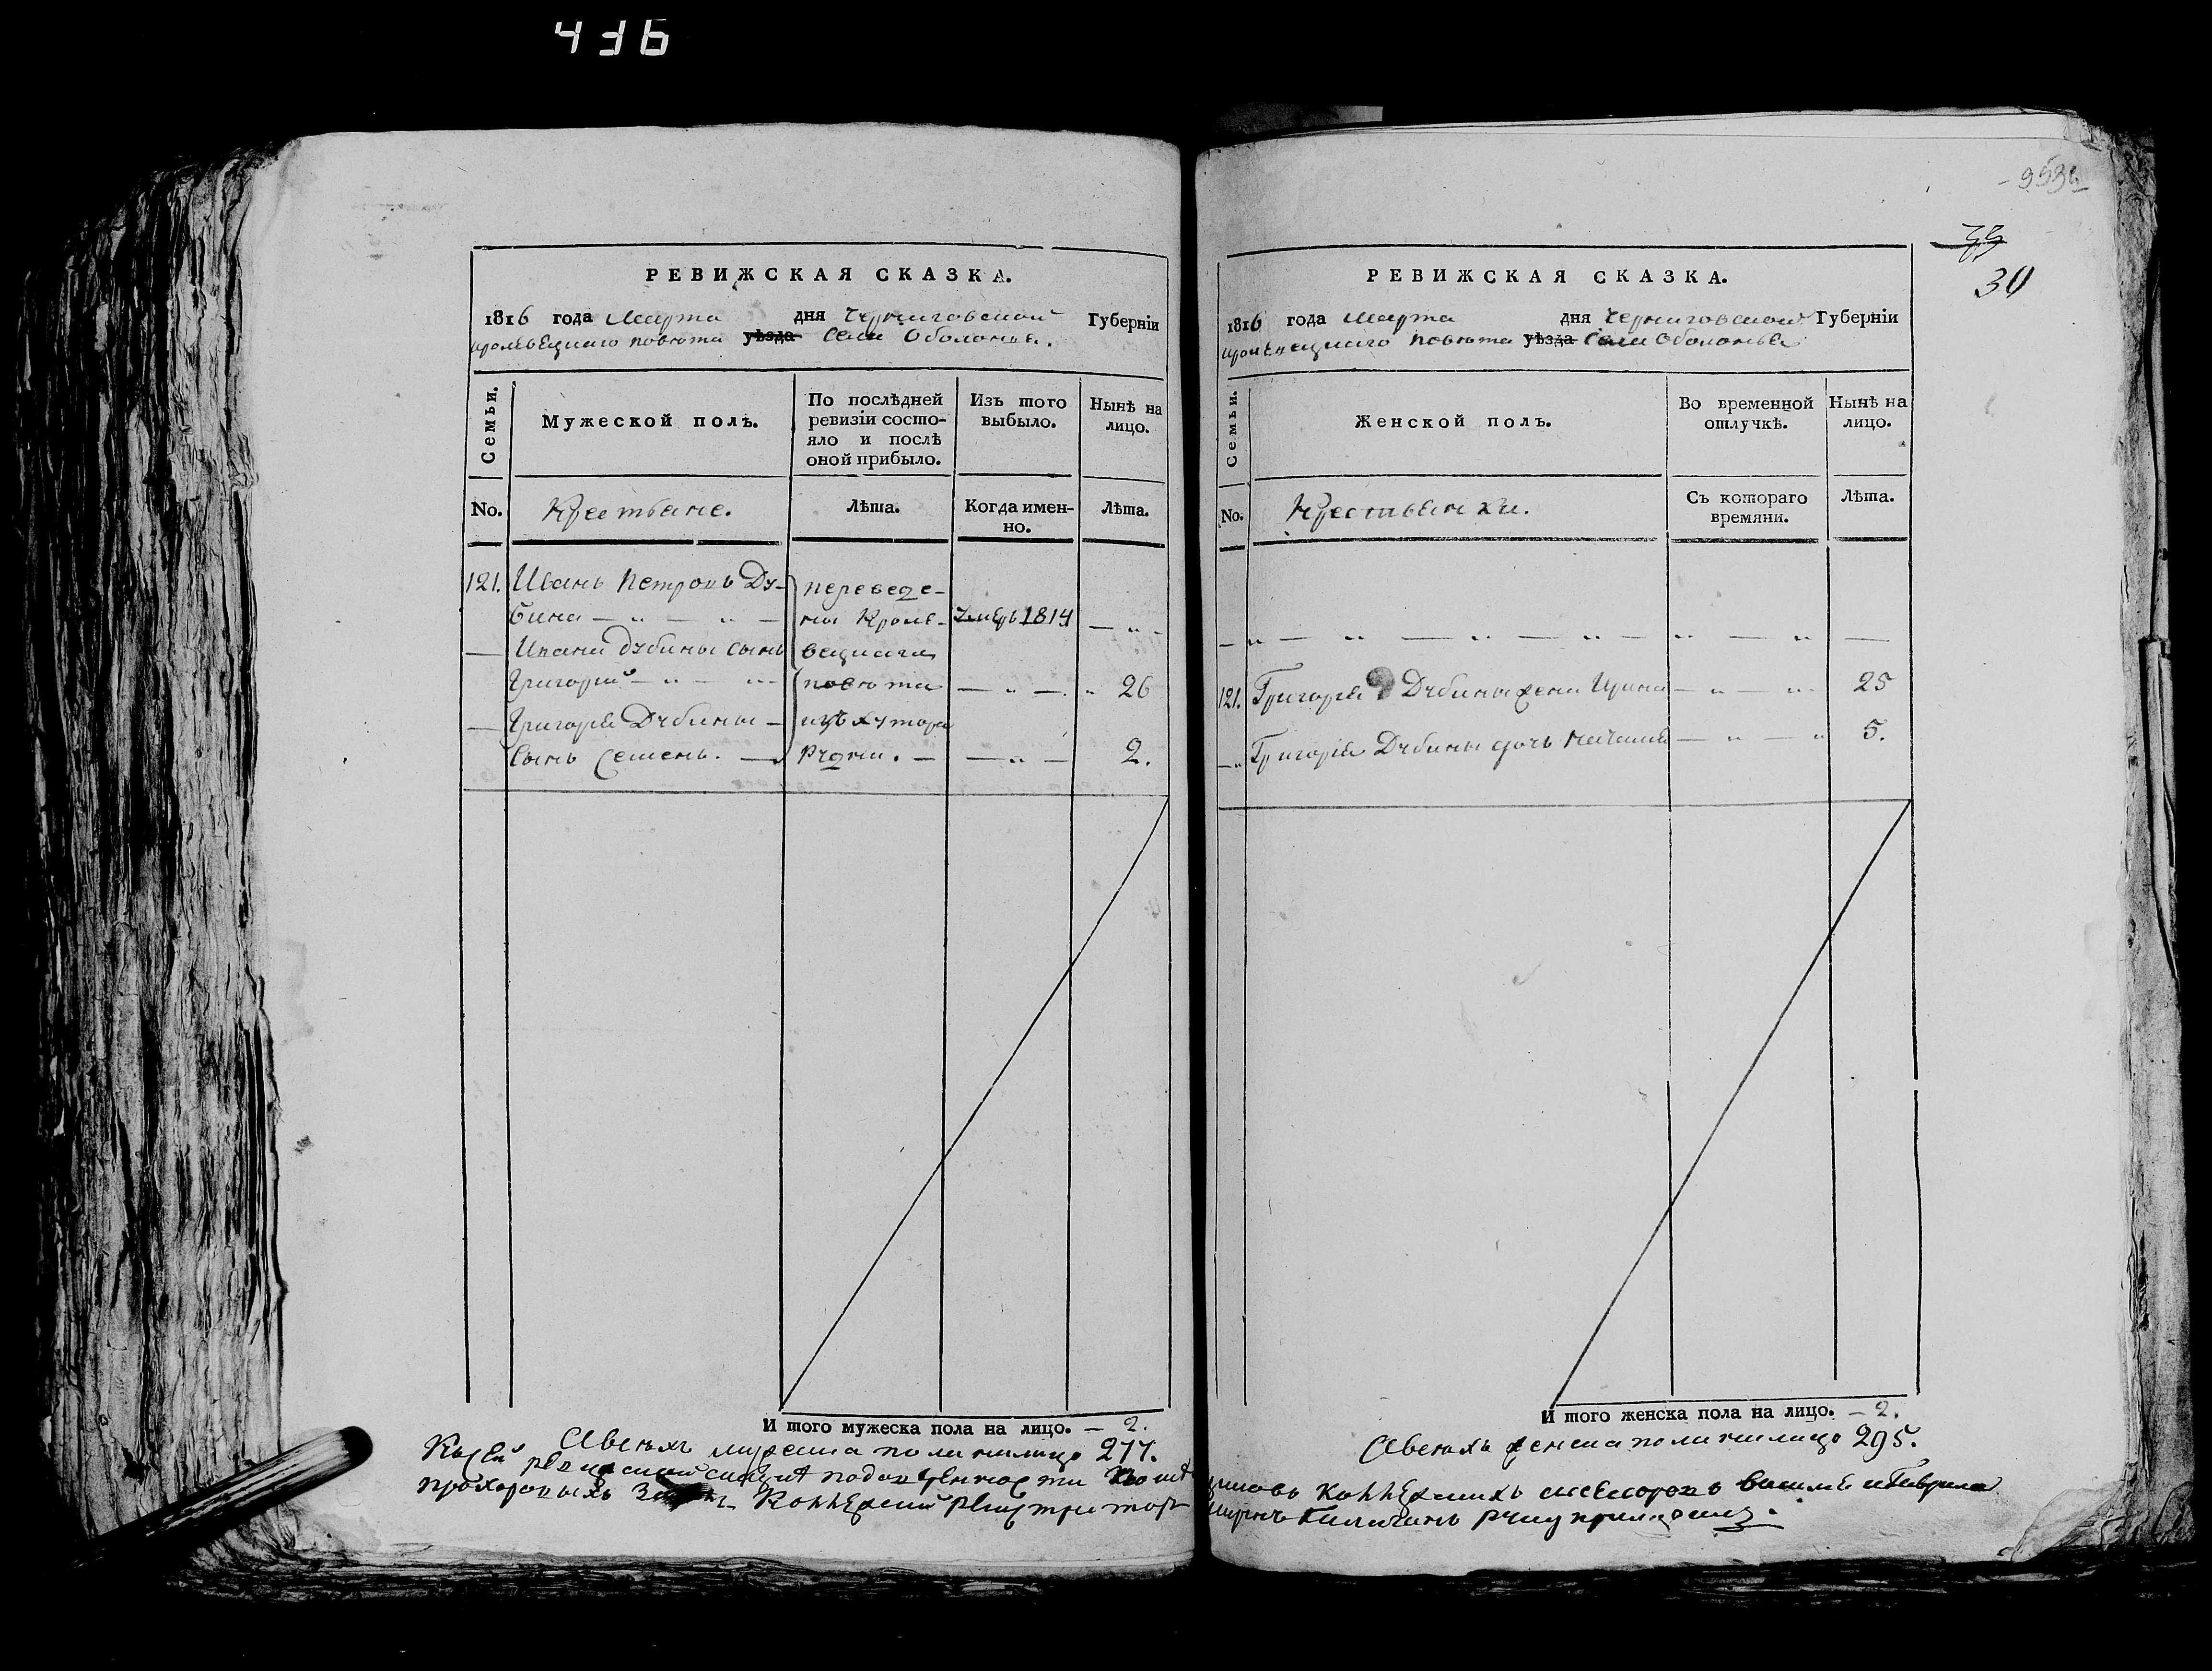 436
953
30
РЕВИЖСКАЯ СКАЗКА.
1816 года Марта дня Черниговской Губерніи
Кролевецкаго повѣта уѣзда Села Оболонья.
Семьи.
Мужеской полъ.
По послѣдней ревизіи состо-
яло и послѣ
оной прибыло.
Изъ того
выбыло.
Нынѣ на
лицо.
No.
Крестьяне.
Лѣта.
Когда имен-
но.
Лѣта.
121. Иванъ Петровъ Ду- переведе-
бина — „ — „ — ны Кроле- 1814 — „ -
— Ивана Дубины сынъ вецкаго
Григорій — „ — „ — повѣта — „ — „ 26
— Григорія Дубины — изъ хутора
сынъ Семенъ. — Рудни. — — „ — 2.
И того мужеска пола на лицо. — 2.
А всѣхъ мужеска пола на лицо 277.
РЕВИЖСКАЯ СКАЗКА.
1816 года Марта дня Черниговской Губерніи
Кролевецкаго повѣта уѣзда Села Оболонья
Семьи.
Женской полъ.
Во временной
отлучкѣ.
Нынѣ на
лицо.
No.
Крестьянки.
Съ котораго
времяни.
Лѣта.
— „ — „ — „ — „ — „ — „ —
121. Григорія Дубины жена Ирина — „ — „ 25
— „ Григорія Дубины дочь Наталія — „ — „ 5.
И того женска пола на лицо. — 2.
А всѣхъ женска пола на лицо 295.
Къ сей ревижской сказкѣ по довѣренности
Коллежскихъ асесоровъ Василія и Гаврила
Прохоровыхъ Коллежскій регистраторъ
руку приложилъ.